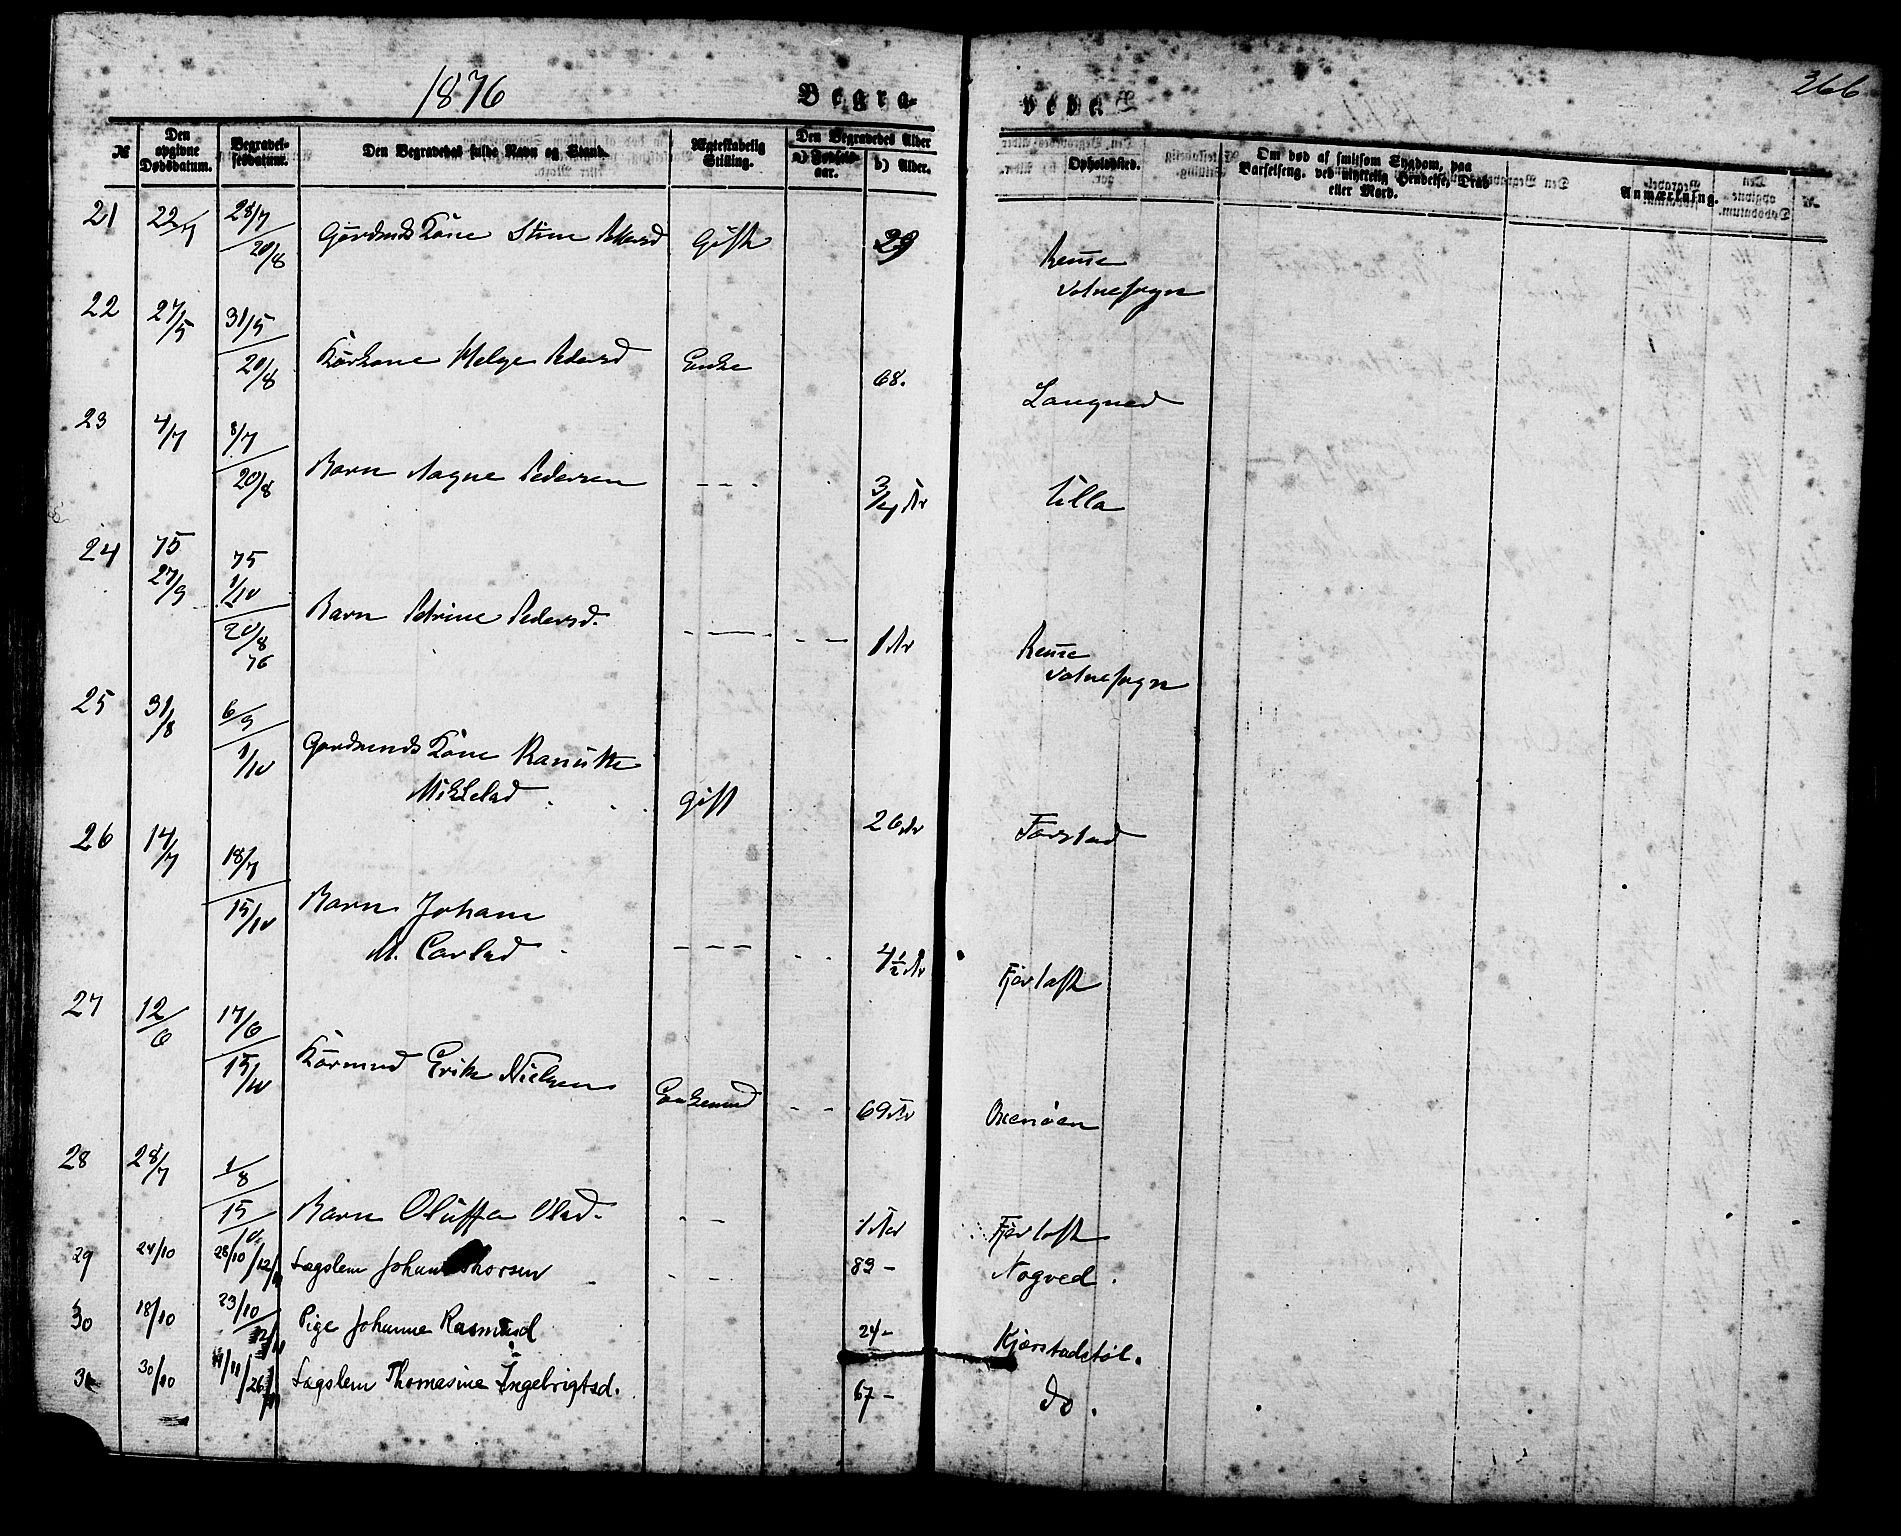 1876
Begra-
vede.
366
№
Den opgivne Dødsdatum.
Begravelsesdatum.
Den Begravedes fulde Navn og Stand.
Ægteskabelig Stilling.
Den Begravedes Alder
a) Fødselsaar.
b) Alder.
Opholdssted.
Om død af smitsom Sygdom, paa Barselseng, ved ulykkelig Hendelse, Drab eller Mord.
Anmærkning.
21 28/7 20/8 Gårdmds Kone Stine Pedersd Gift 29
22 27/5 31/5 20/8 Kårkone Helge Pedersd Enke 68. Langned
23 4/7 8/7 20/8 Barn Aagne Pedersen - - - 3/4 År Ulla
24 75 27/9 75 1/10 20/8 76 Barn Petrine Pedersd. 1 År
25 31/8 6/9 1/10 Gårdmands Kone
Gift 26 År Farstad
26 14/7 18/7 15/10 Barn Johane
M. Carlsd - - - 4 1/2 År Fjørtoft
27 12/6 17/6 15/10 Kårmnd Erik Nielsen Enkemnd - - 69 År Oxenöen
28 28/7 1/8 15/10 Barn Oluffa Olsd. - - 1 År Fjørtoft
29 24/10 28/10 /12/11 Lægslem Johan Thorsen - - 83 - Nogved.
30 18/10 23/10 12/11 Pige Johanne Rasmusd 24 - Kjærstadstøl.
31 30/10 /26/ Lægslem Thomasine Ingebrigtsd. 67 - do.